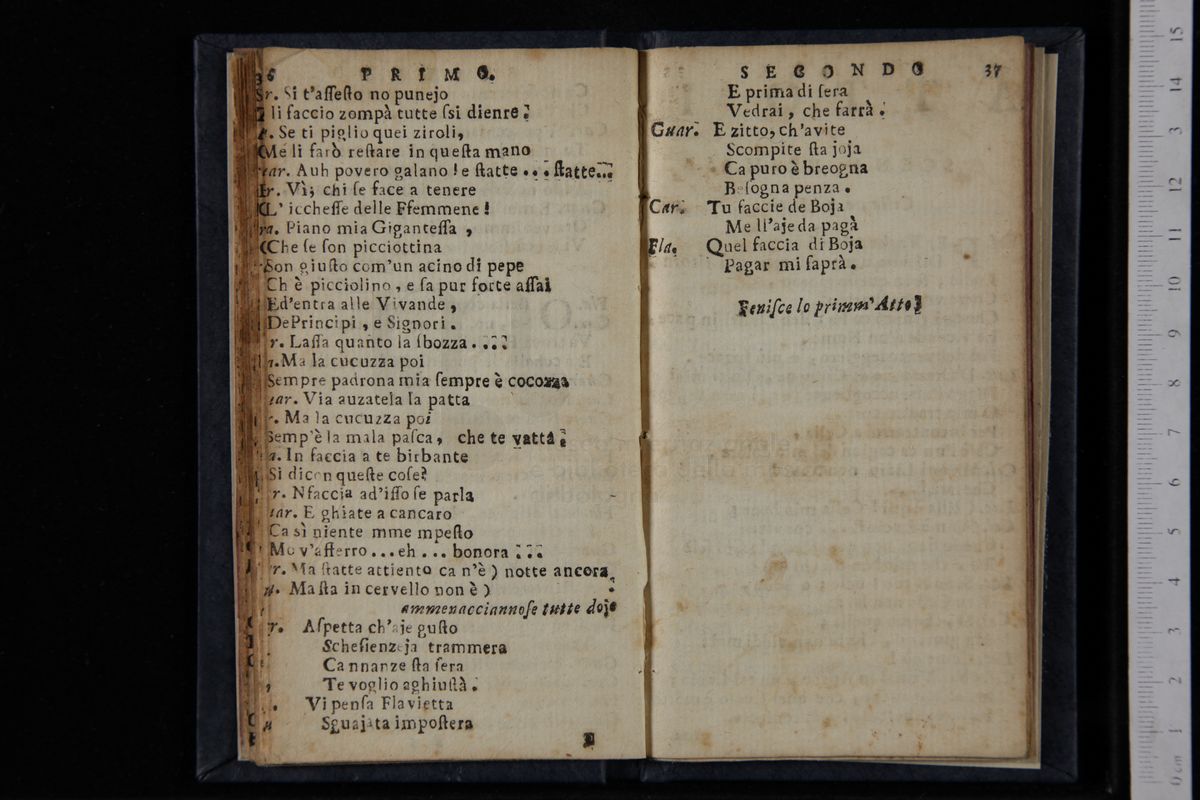 36 PRIMO.
r. Si t'affesto no punejo
li faccio zompà tutte ssi dienre:
Se ti piglio quei ziroli,
Me li farò restare in questa mano
ar. Auh povero galano! e statte... statte...
r. Vì; chi se face a tenere
L' iccheffe delle Ffemmene!
Piano mia Gigantessa,
Che se son picciottina
Son giusto com'un acino di pepe
Ch è picciolino, e fa pur forte assai
Ed'entra alle Vivande,
DePrincipi, e Signori.
r. Lassa quanto la sbozza....
a. Ma la cucuzza poi
Sempre padrona mia sempre è cocozza
ar. Via auzatela la patta
r. Ma la cucuzza poi
Semp'è la mala pasca, che te vatta:
a. In faccia a te birbante
Si dicon queste cose?
r. Nfaccia ad'isso se parla
ar. E ghiate a cancaro
Ca sì niente mme mpesto
Mo v'afferro...eh... bonora ...
r. Ma statte attiento ca n'è ) notte ancora.
Ma sta in cervello non è )
ammenacciannose tutte doje
r. Aspetta ch'aje gusto
Schefienzeja trammera
Ca nnanze sta sera
Te voglio aghiustà.
Vi pensa Flavietta
Sguajata impostera
SECONDO 37
E prima di sera
Vedrai, che farrà.
Guar. E zitto, ch'avite
Scompite sta joja
Ca puro è breogna
Besogna penza.
Car. Tu faccie de Boja
Me ll'aje da pagà
Fla. Quel faccia di Boja
Pagar mi saprà.
Fenisce lo primm' Atto.